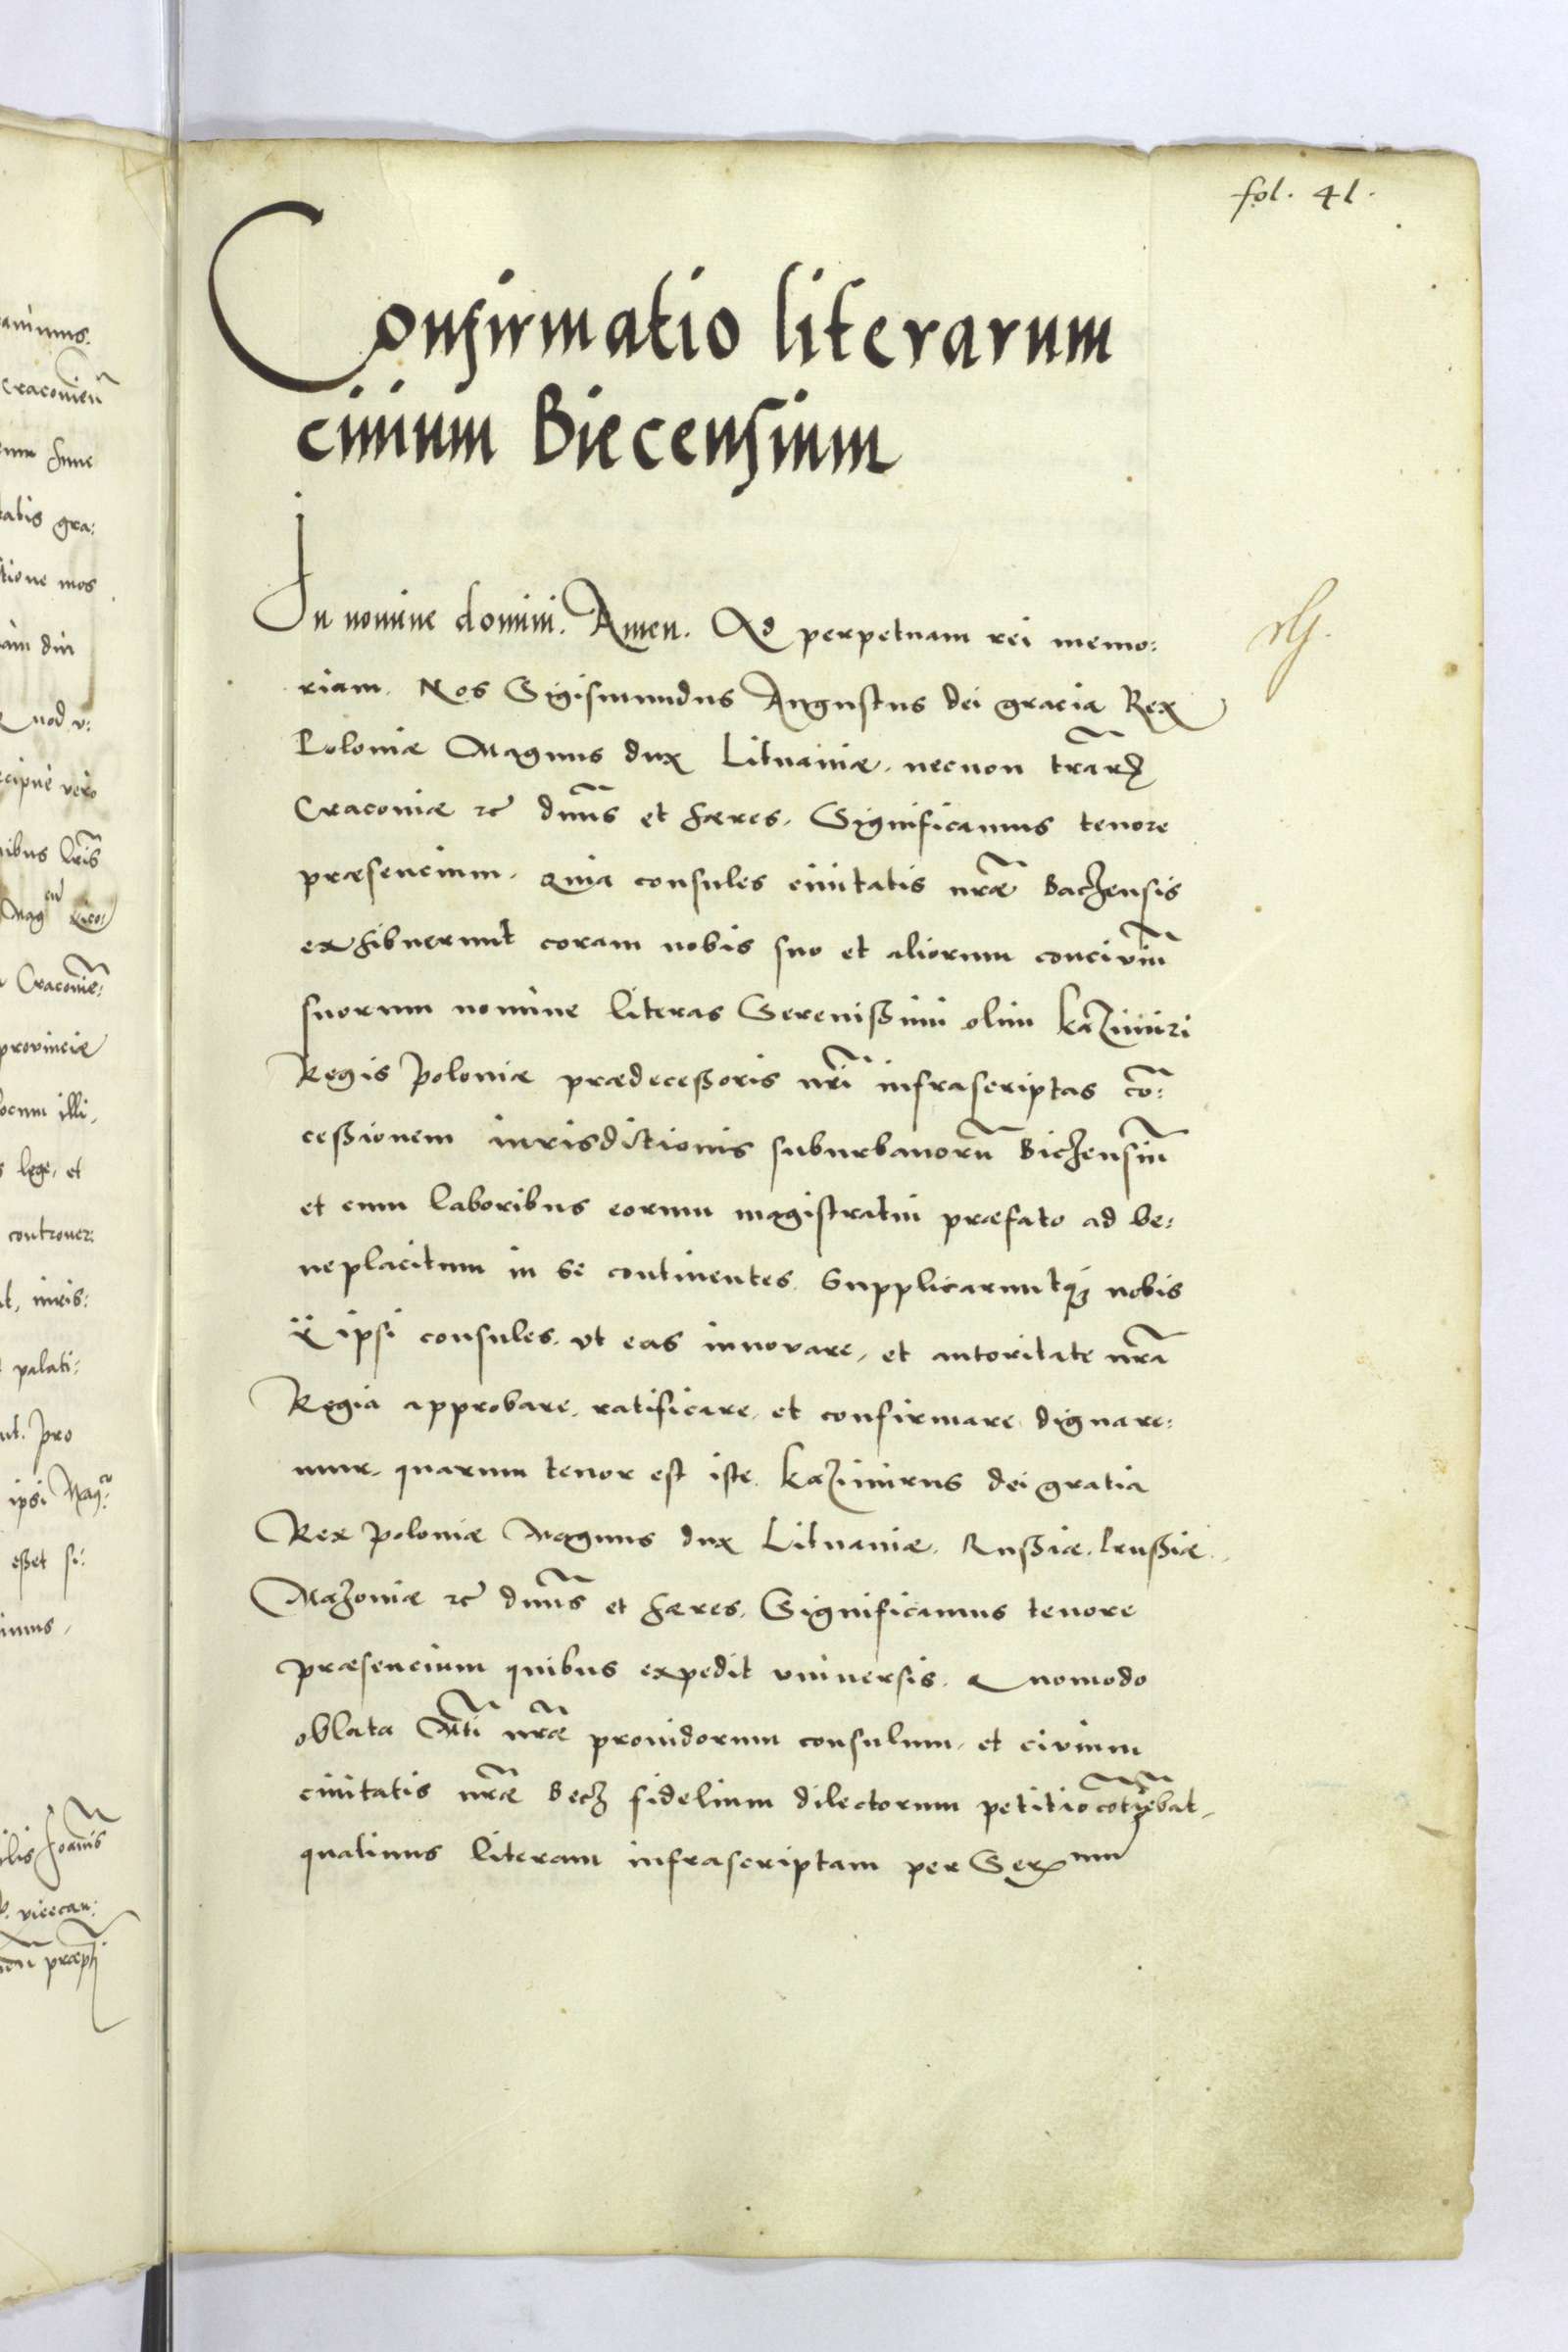 fol. 41.
Confirmatio literarum
ciuium Biecensium
In nomine domini. Amen. Ad perpetuam rei memo:
riam. Nos Sigismundus Augustus dei gracia Rex
Poloniæ Magnus dux Lituaniæ. necnon trãrꝫ
Cracoviæ &c dnũs et hæres. Significamus tenore
præsencium. quia consules ciuitatis nrãe Baczensis
exhibuerunt coram nobis suo et aliorum conciviũ
suorum nomine literas Serenißimi olim Kazimiri
Regis Poloniæ prædeceßoris nrĩ infrascriptas cõ:
ceßionem iurisdictionis suburbanorũ Biczensiũ
et cum laboribus eorum magistratui præfato ad be:
neplacitum in se continentes. Supplicaruntqꝫ nobis
ÿ ipsi consules. vt eas innovare, et autoritate nrã
Regia approbare. ratificare. et confirmare dignare:
mur. quarum tenor est iste. Kazimirus dei gratia
Rex Poloniæ Magnus dux Lituaniæ. Rußiæ. Prußiæ.
Mazoviæ &c dnũs et hæres. Significamus tenore
præsencium quibus expedit vniversis. Quomodo
oblata Mtĩ nrãe prouidorum consulum. et civium
ciuitatis nrãe Becz fidelium dilectorum petitio cõtiñebat.
quatinus literam infrascriptam per Serᵐᵘᵐ
auimus.
Cracovieñ
tatis gra:
tione mos
Quod v:
ecipuè vero
ibus lrĩs
Cracoviẽ:
provinciæ
locum illi.
s lege, et
controuer:
t, iuris:
palati:
ut. Pro
ipsi Mag:
eßet si:
imus,
ilis Joañis
vicecan: